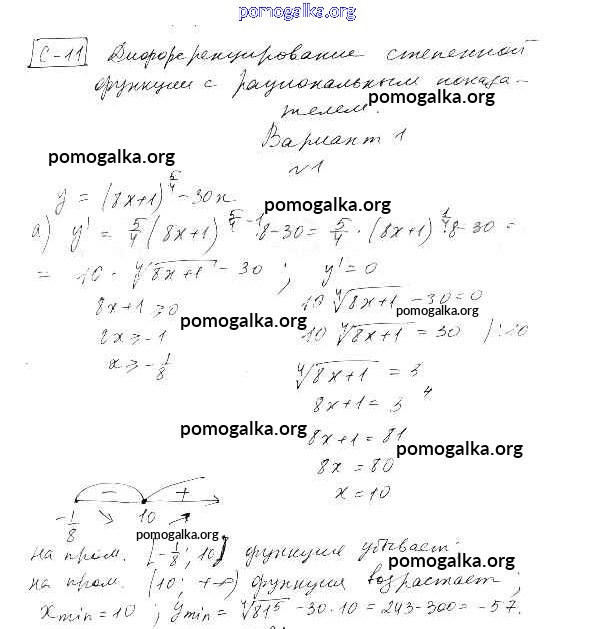 pomogalka.org
С-11 Дифференцирование степенной
функции с рациональным показа-
телем.
pomogalka.org
Вариант 1
pomogalka.org
№1
y = (8x+1)^(5/4) - 30x
pomogalka.org
а) y' = 5/4 (8x+1)^(5/4 - 1) · 8 - 30 = 5/4 · (8x+1)^(1/4) · 8 - 30 =
= 10 · ⁴√(8x+1) - 30 ; y' = 0
8x+1 ≥ 0 10 ⁴√(8x+1) - 30 = 0
pomogalka.org
pomogalka.org
8x ≥ -1 10 ⁴√(8x+1) = 30 / :10
x ≥ -1/8 ⁴√(8x+1) = 3
8x+1 = 3⁴
pomogalka.org
8x+1 = 81
pomogalka.org
8x = 80
x = 10
- +
-1/8 ↘ 10 ↗
pomogalka.org
на пром. [-1/8; 10] функция убывает
pomogalka.org
на пром. (10; +∞) функция возрастает;
xmin = 10 ; ymin = ⁴√81⁵ - 30·10 = 243 - 300 = -57.